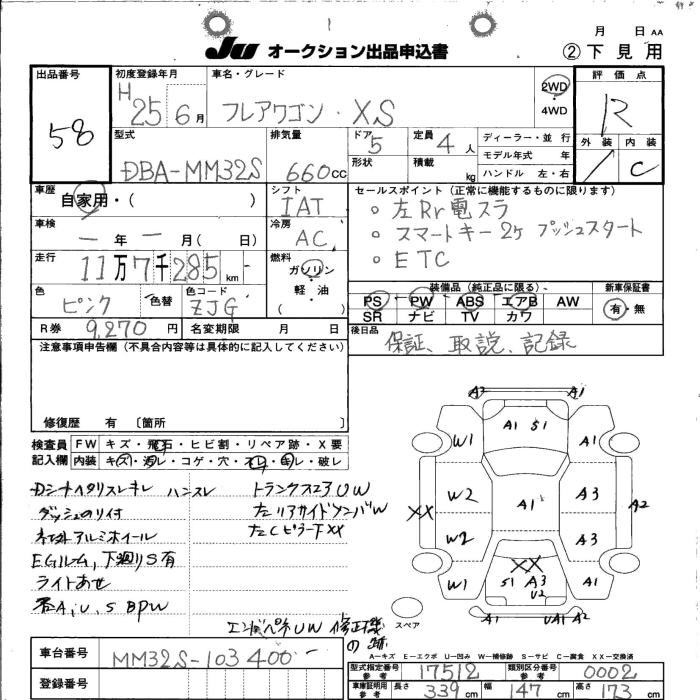 月 日 AA
JU オークション出品申込書
② 下見用
出品番号
58
初度登録年月
H25 6月
車名・グレード
フレアワゴン・XS
2WD
4WD
評価点
R
外装 内装
C
型式
DBA-MM32S
排気量
660cc
ドア
5
形状
定員
4人
積載
kg
ディーラー・並行
モデル年式 年
ハンドル 左・右
車歴
自家用・( )
シフト
IAT
車検
ー年ー月( 日)
冷房
AC
走行
11万7千285km
燃料
ガソリン
軽・油
( )
色
ピンク
色替
色コード
ZJG
R券 9,270円
名変期限 月 日
セールスポイント(正常に機能するものに限ります)
○ 左Rr電スラ
○ スマートキー2ヶ プッシュスタート
○ ETC
装備品(純正品に限る)
PS PW ABS エアB AW
SR ナビ TV カワ
新車保証書
有・無
後日品
保証、取説、記録
注意事項申告欄(不具合内容等は具体的に記入してください)
修復歴 有 〔箇所
検査員
記入欄
FW キズ・飛石・ヒビ割・リペア跡・X要
内装 キズ・汚レ・コゲ・穴・スレ・キレ・破レ
Dシートヘタリスレキレ ハンスレ
ダッシュのり付
ネ社外アルミホイール
EGルーム、下廻りS有
ライトあせ
各A、U、S BPW
トランクフロアUW
左リアサイドメンバW
左Cピラー下XX
エンドパネUW 修正機の跡
A2 A1
A1 S1
W1 A1
W2 A1 A3
XX A2
W2 A3
XX
W1 S1 A3 A1
U2
A1 UA1 A2
スペア
A－キズ E－エクボ U－凹み W－補修跡 S－サビ C－腐食 XX－交換済
車台番号
MM32S-103400
登録番号
型式指定番号
参考
17512
類別区分番号
参考
0002
車庫証明用
参考
長さ 339cm 幅 147cm 高さ 173cm